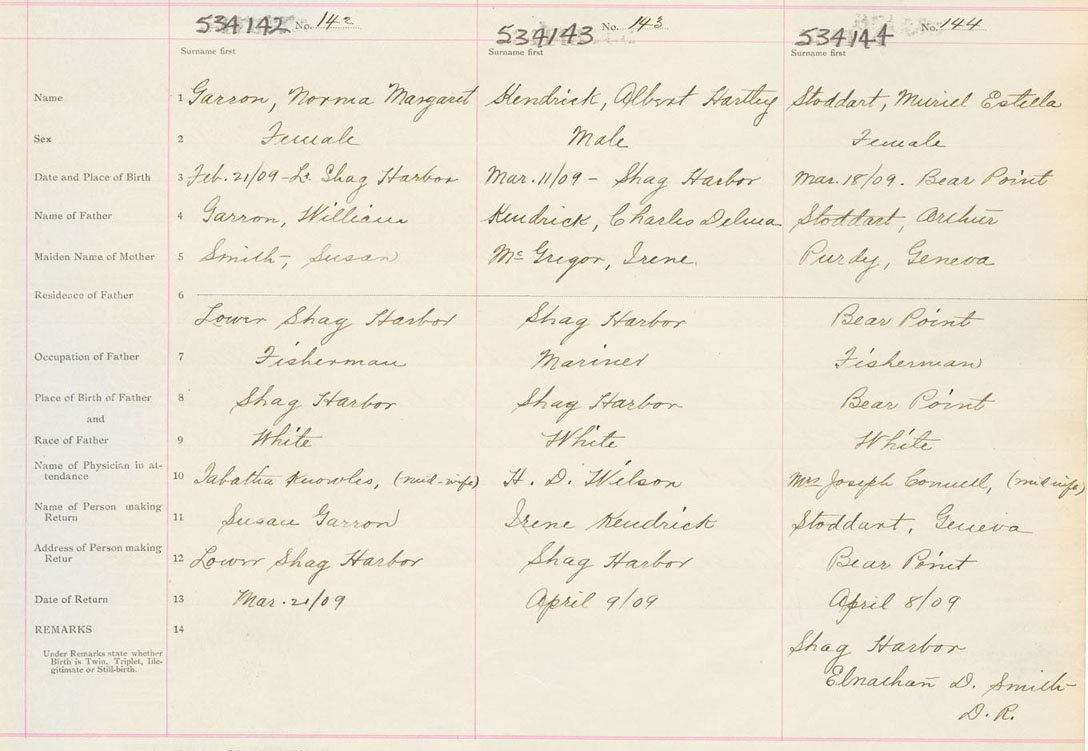 534142 No. 142 534143 No. 143 534144 No. 144
Surname first Surname first Surname first
Name 1 Garron, Norma Margaret Kendrick, Albert Hartley Stoddart, Muriel Estella
Sex 2 Female Male Female
Date and Place of Birth 3 Feb. 21/09 - Lr. Shag Harbor Mar. 11/09 - Shag Harbor Mar. 18/09. Bear Point
Name of Father 4 Garron, William Kendrick, Charles Delma Stoddart, Arthur
Maiden Name of Mother 5 Smith, Susan McGregor, Irene Purdy, Geneva
Residence of Father 6
Lower Shag Harbor Shag Harbor Bear Point
Occupation of Father 7 Fisherman Mariner Fisherman
Place of Birth of Father 8 Shag Harbor Shag Harbor Bear Point
and
Race of Father 9 White White White
Name of Physician in at-
tendance 10 Tabatha Knowles, (mid-wife) H. D. Wilson Mrs Joseph Connell, (mid-wife)
Name of Person making
Return 11 Susan Garron Irene Kendrick Stoddart, Geneva
Address of Person making
Retur 12 Lower Shag Harbor Shag Harbor Bear Point
Date of Return 13 Mar. 21/09 April 9/09 April 8/09
REMARKS 14
Under Remarks state whether
Birth is Twin, Triplet, Ille-
gitimate or Still-birth.
Shag Harbor
Elnathan D. Smith
D. R.